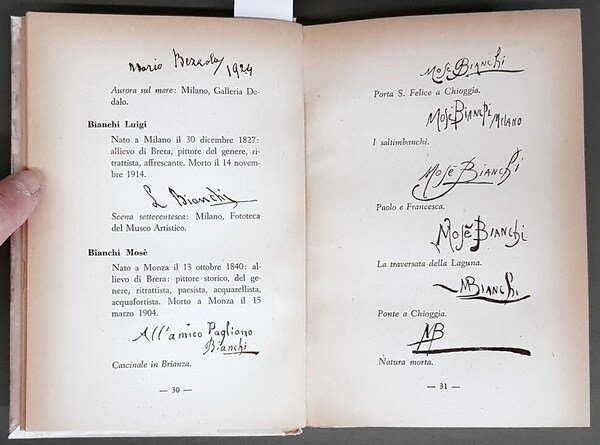 Mario Bezzola 1924
Aurora sul mare: Milano, Galleria De-
dalo.
Bianchi Luigi
Nato a Milano il 30 dicembre 1827:
allievo di Brera, pittore del genere, ri-
trattista, affrescante. Morto il 14 novem-
bre 1914.
L Bianchi
Scena settecentesca: Milano, Fototeca
del Museo Artistico.
Bianchi Mosè
Nato a Monza il 13 ottobre 1840: al-
lievo di Brera: pittore storico, del ge-
nere, ritrattista, paesista, acquarellista,
acquafortista. Morto a Monza il 15
marzo 1904.
All'amico Pagliano
Bianchi
Cascinale in Brianza.
— 30 —
Mosè Bianchi
Porta S. Felice a Chioggia.
Mosè Bianchi Milano
I saltimbanchi.
Mosè Bianchi
Paolo e Francesca.
Mosè Bianchi
La traversata della Laguna.
MBianchi
Ponte a Chioggia.
MB
Natura morta.
— 31 —